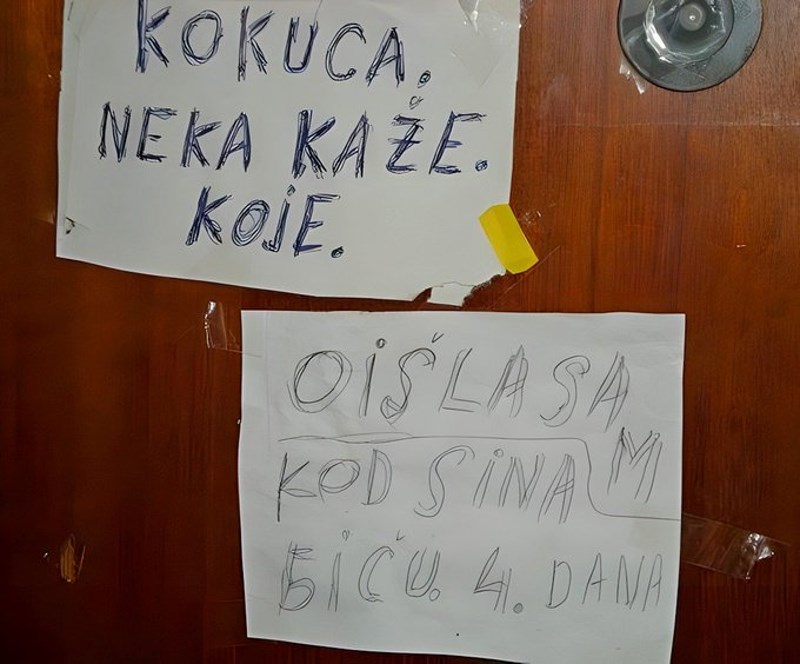 KOKUCA.
NEKA KAŽE.
KOJE.
OIŠLA SAM
KOD SINA
BIĆU. 4. DANA